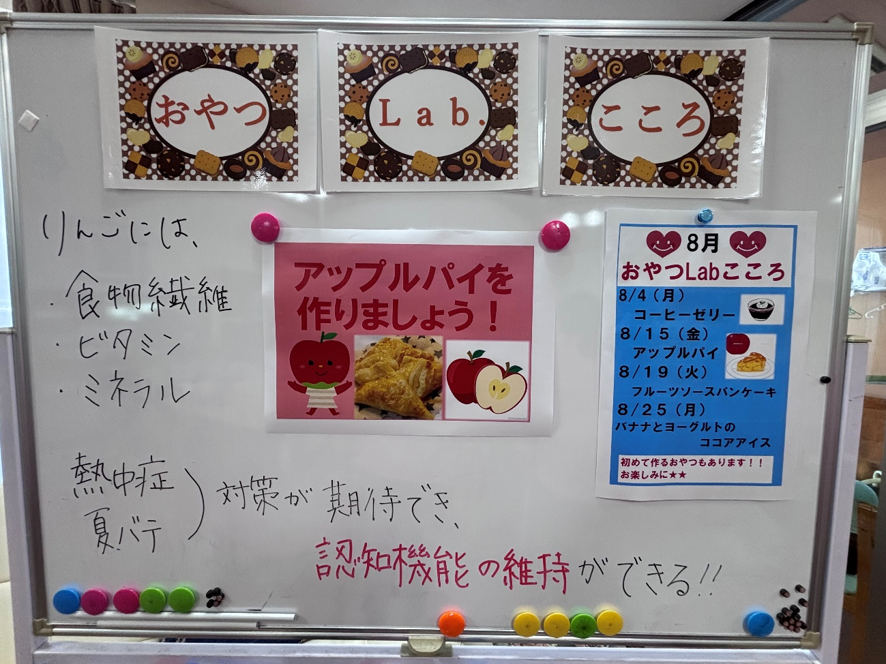 おやつ Lab. こころ
りんごには、
・食物繊維
・ビタミン
・ミネラル
アップルパイを
作りましょう！
8月
おやつLabこころ
8/4（月）
コーヒーゼリー
8/15（金）
アップルパイ
8/19（火）
フルーツソースパンケーキ
8/25（月）
バナナとヨーグルトの
ココアアイス
初めて作るおやつもあります！！
お楽しみに★★
熱中症
夏バテ
対策が期待でき、
認知機能の維持ができる!!